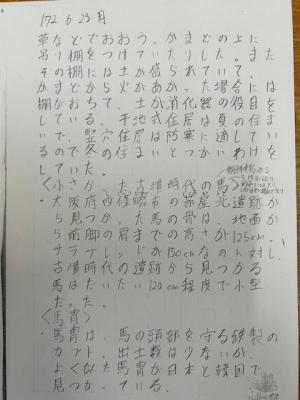 172 6 23 月
草などでおおう。かまどの上に
吊り棚をつけていたりした。また
その棚には土が盛られていて、
かまどから火があがった場合には
棚がおちて、土が消化器の役目を
している。平地式住居は夏の住ま
いで、竪穴住居は防寒に適してい
るので冬の住まいとつかいわけを
していた。
〈小さかった古墳時代の馬〉
・大阪府四條畷市の蔀屋北遺跡か
ら見つかった馬の骨は、地面か
ら前脚の肩までの高さが125cm。
サラブレッドが150cmなのに対し、
古墳時代の遺跡から見つかる
馬はだいたい120cm程度で小型
だった。
〈馬冑〉
・馬冑は、馬の頭部を守る鉄製の
カブト。出土数は少ないが、
よく似た馬冑が日本と韓国で
見つかっている。